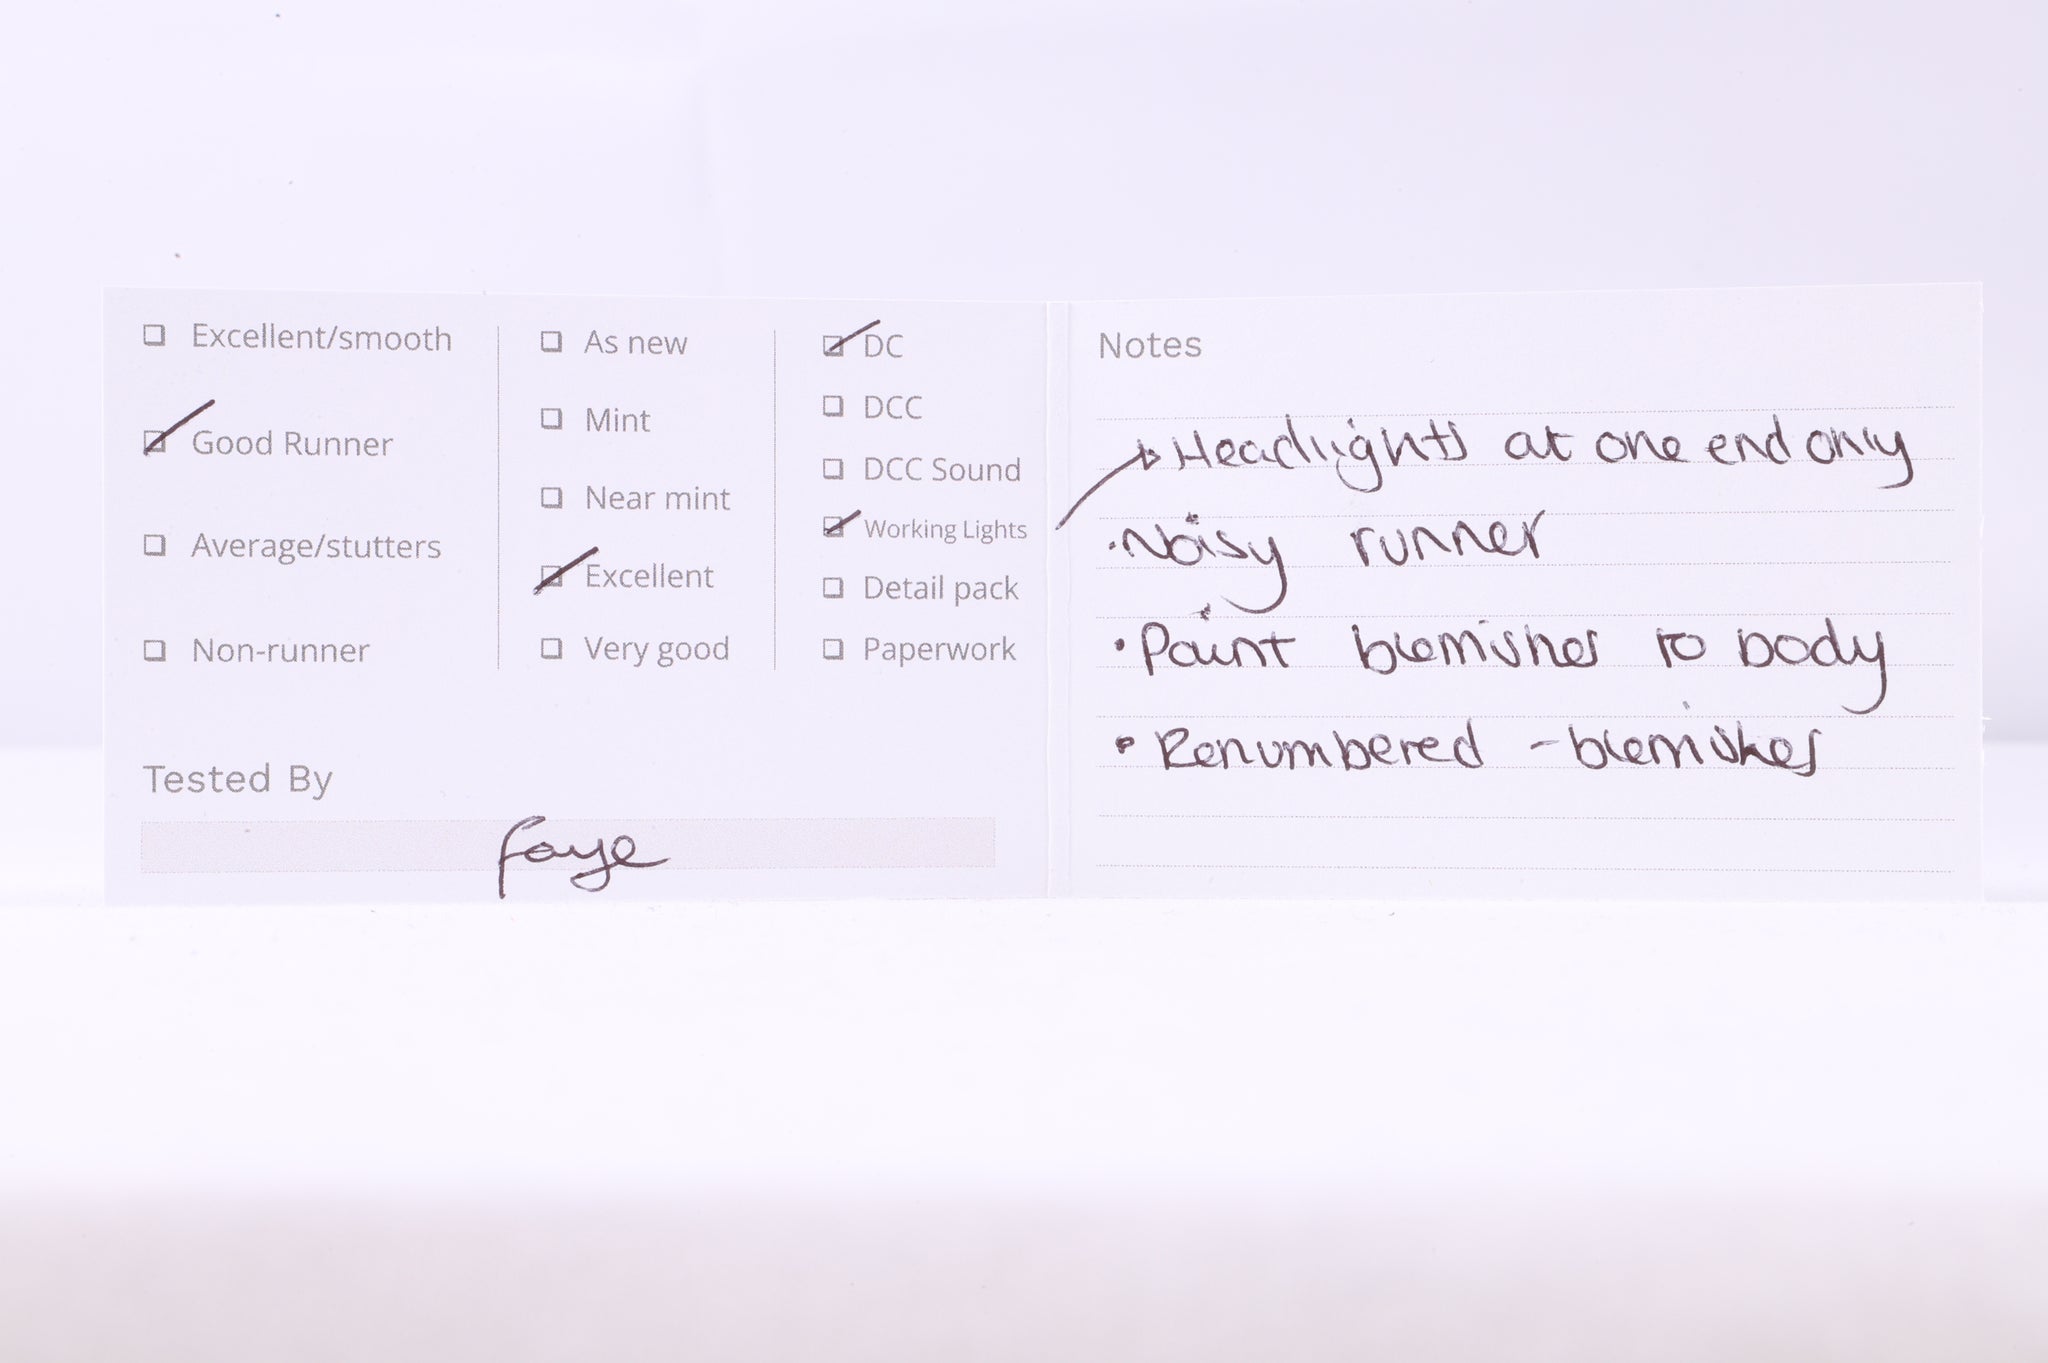 Excellent/smooth
Good Runner
Average/stutters
Non-runner
As new
Mint
Near mint
Excellent
Very good
DC
DCC
DCC Sound
Working Lights
Detail pack
Paperwork
Tested By
Faye
Notes
Headlights at one end only
• Noisy runner
• Paint blemishes to body
• Renumbered - blemishes